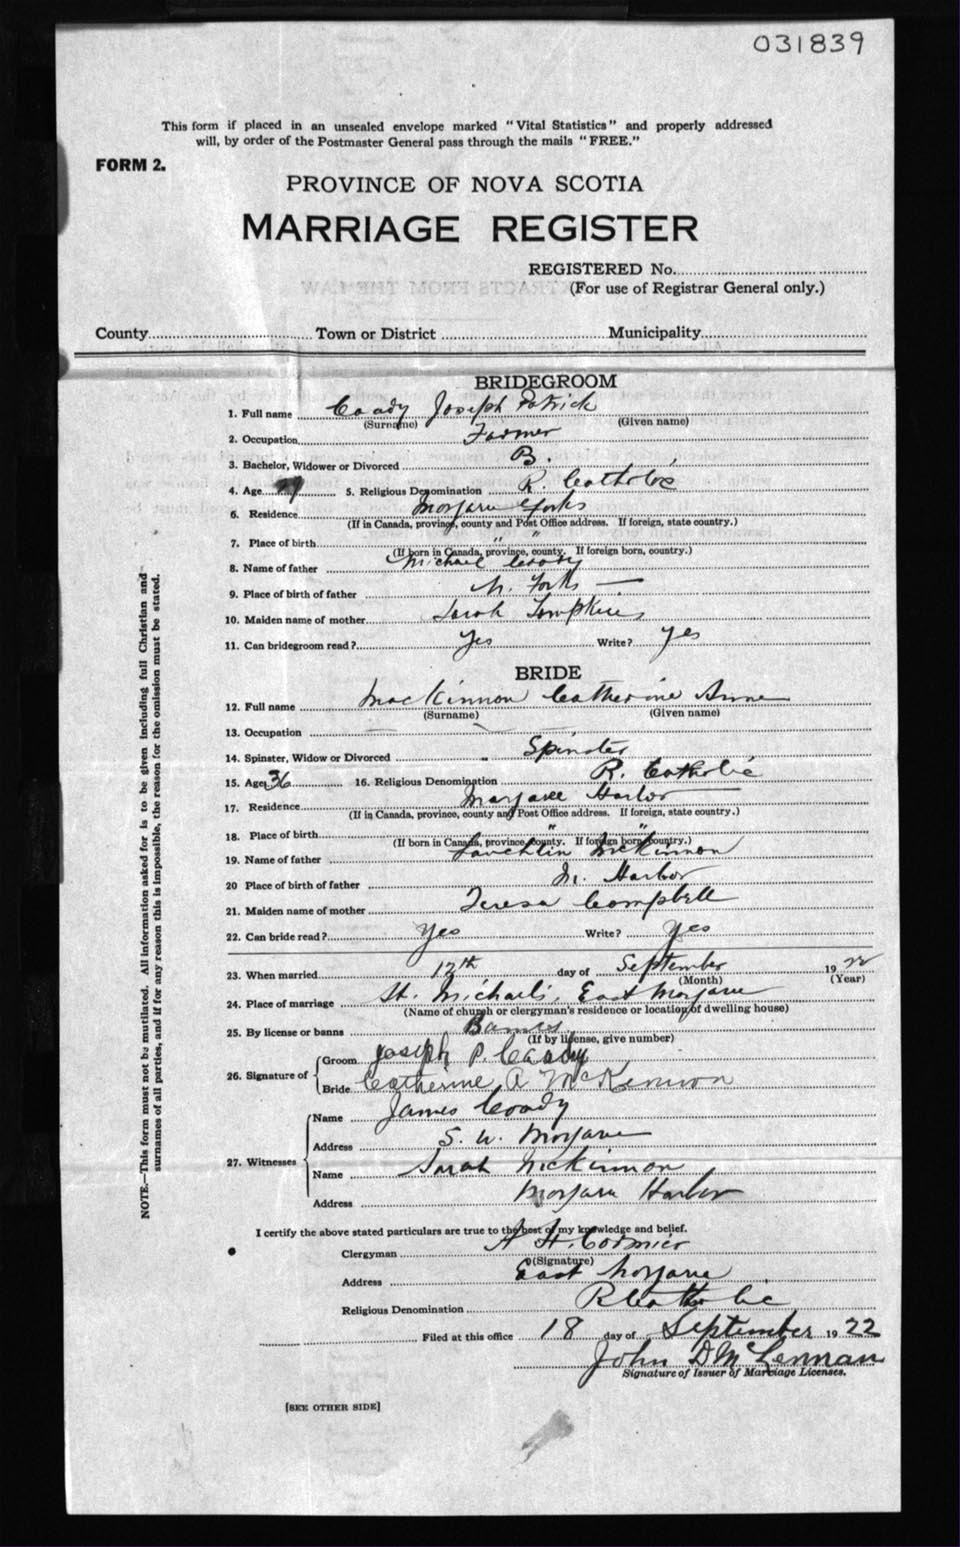 031839
This form if placed in an unsealed envelope marked "Vital Statistics" and properly addressed
will, by order of the Postmaster General pass through the mails "FREE."
FORM 2.
PROVINCE OF NOVA SCOTIA
MARRIAGE REGISTER
REGISTERED No.
(For use of Registrar General only.)
County Town or District Municipality
BRIDEGROOM
1. Full name Coady Joseph Patrick
(Surname) (Given name)
2. Occupation Farmer
3. Bachelor, Widower or Divorced B.
4. Age 5. Religious Denomination R. Catholic
6. Residence Margaree Forks
(If in Canada, province, county and Post Office address. If foreign, state country.)
7. Place of birth " "
(If born in Canada, province, county. If foreign born, country.)
8. Name of father Michael Coady
9. Place of birth of father M. Forks
10. Maiden name of mother Sarah Tompkins
11. Can bridegroom read? Yes Write? yes
BRIDE
12. Full name MacKinnon Catherine Anne
(Surname) (Given name)
13. Occupation
14. Spinster, Widow or Divorced Spinster
15. Age 36 16. Religious Denomination R. Catholic
17. Residence Margaree Harbor
(If in Canada, province, county and Post Office address. If foreign, state country.)
18. Place of birth " "
(If born in Canada, province, county. If foreign born, country.)
19. Name of father Lauchlin McKinnon
20 Place of birth of father M. Harbor
21. Maiden name of mother Teresa Campbell
22. Can bride read? Yes Write? Yes
23. When married 12th day of September 1922
(Month) (Year)
24. Place of marriage St. Michael's, East Margaree
(Name of church or clergyman's residence or location of dwelling house)
25. By license or banns Banns
(If by license, give number)
26. Signature of Groom Joseph P. Coady
Bride Catherine A McKinnon
27. Witnesses Name James Coady
Address S. W. Margaree
Name Sarah McKinnon
Address Margaree Harbor
I certify the above stated particulars are true to the best of my knowledge and belief.
Clergyman A H. Cormier
(Signature)
Address East Margaree
Religious Denomination R Catholic
Filed at this office 18 day of September 1922
John D McLennan
Signature of Issuer of Marriage Licenses.
[SEE OTHER SIDE]
NOTE.—This form must not be mutilated. All information asked for is to be given including full Christian and
surnames of all parties, and if for any reason this is impossible, the reason for the omission must be stated.